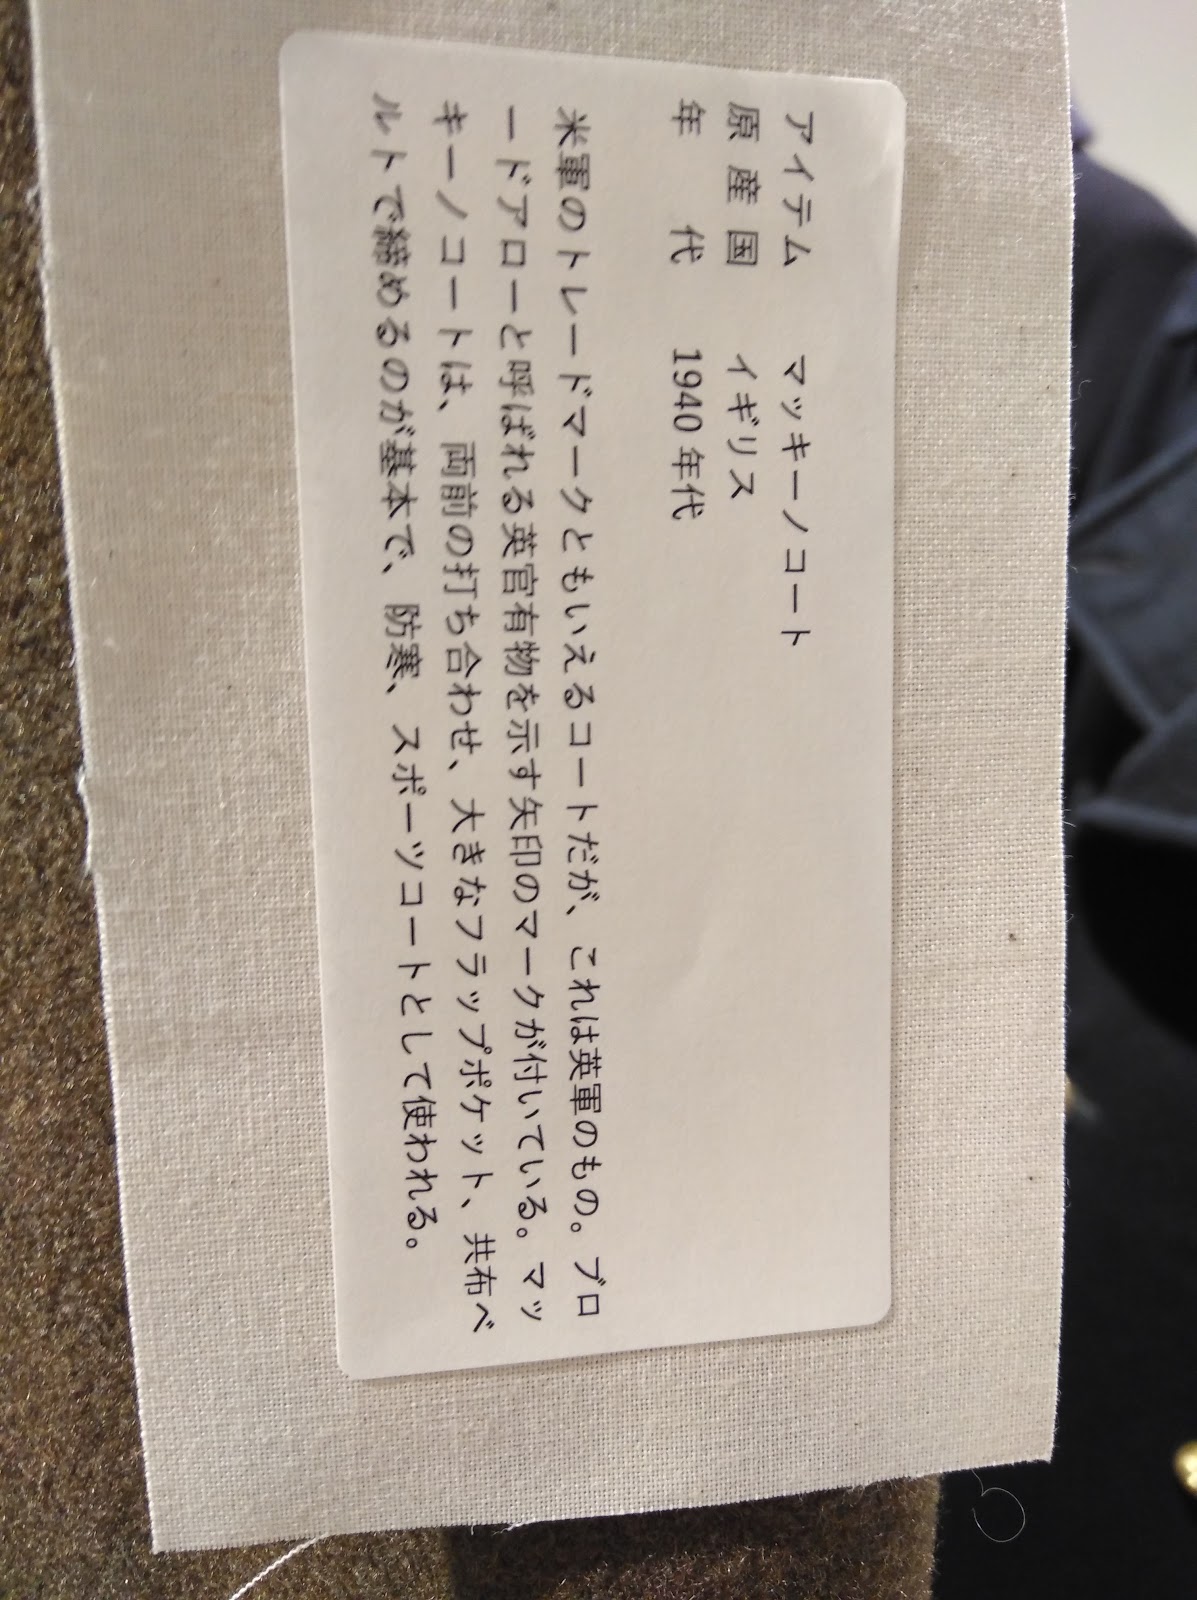 アイテム　マッキーノコート
原産国　イギリス
年代　1940年代
米軍のトレードマークともいえるコートだが、これは英軍のもの。ブロ
ードアローと呼ばれる英官有物を示す矢印のマークが付いている。マッ
キーノコートは、両前の打ち合わせ、大きなフラップポケット、共布ベ
ルトで締めるのが基本で、防寒、スポーツコートとして使われる。